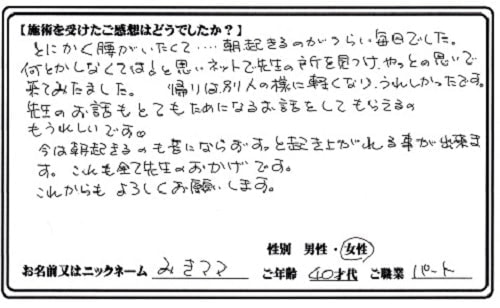 【施術を受けたご感想はどうでしたか?】
とにかく腰がいたくて‥‥朝起きるのがつらい毎日でした。
何とかしなくては!と思いネットで先生の所を見つけ、やっとの思いで
来てみたました。 帰りは、別人の様に軽くなり、うれしかったです。
先生のお話もとてもためになるお話をしてもらえるの
もうれしいです。
今は朝起きるのも苦にならずすっと起き上がれる事が出来ま
す。これも全て先生のおかげです。
これからもよろしくお願いします。
性別 男性・女性
お名前又はニックネーム みきママ ご年齢 40才代 ご職業 パート